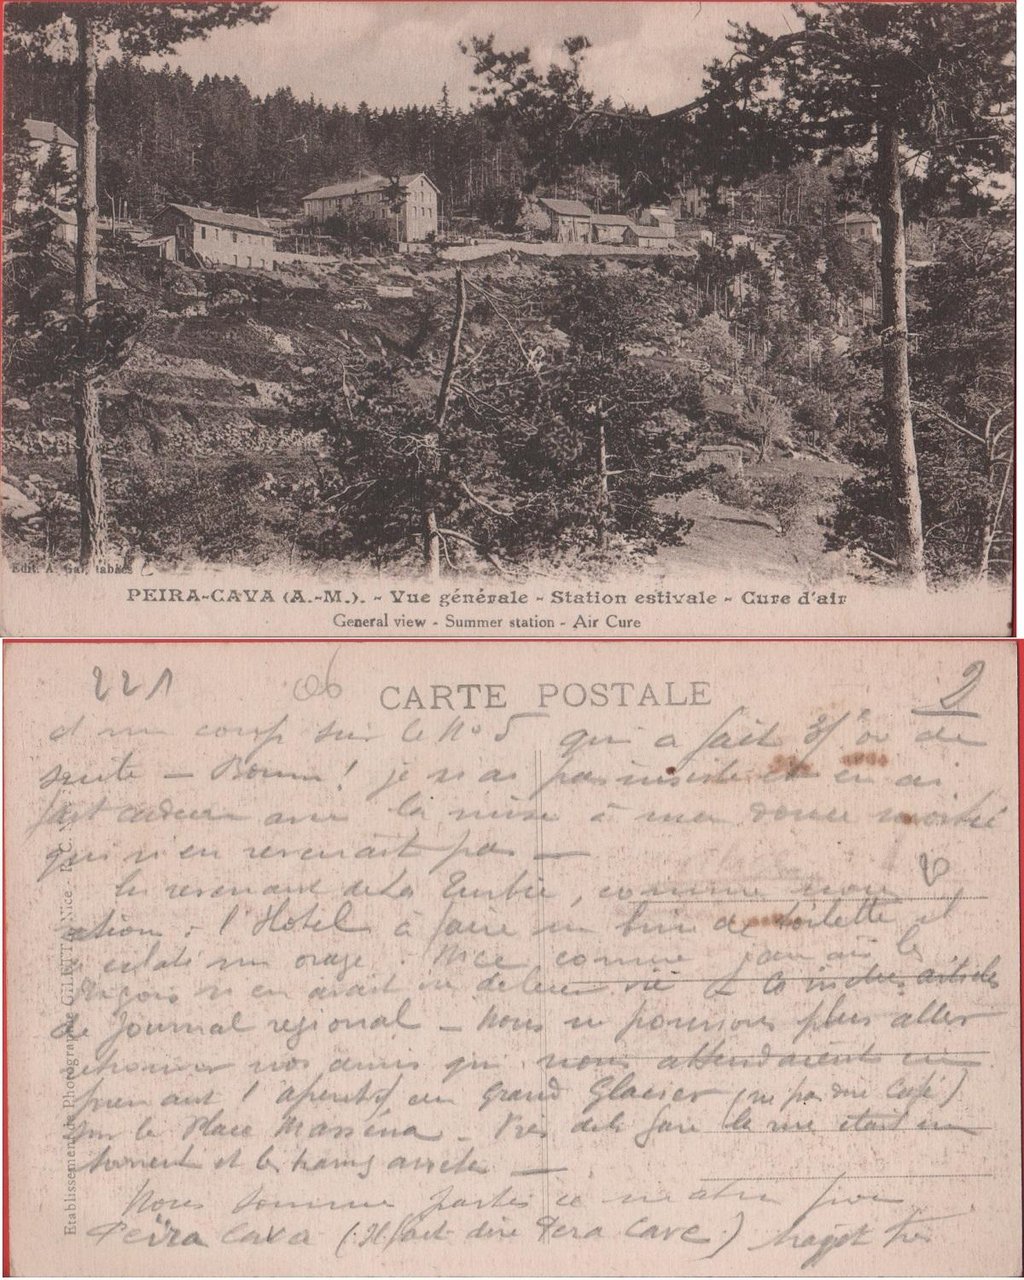 Edit. A. Gal, tabacs
PEIRA-CAVA (A.-M.). - Vue générale - Station estivale - Cure d'air
General view - Summer station - Air Cure
221
06
CARTE POSTALE
2
et un coup sur le No 5 qui a fait de
suite - Boum ! je n'ai pas insisté et en ai
fait cadeau avec la mise à ma douce moitié
qui n'en revenait pas -
En revenant de La Turbie, comme nous
étions à l'Hotel à faire un brin de toilette
éclate un orage. Nice comme jamais le
Niçois n'en avait vu de leur vie
de Journal regional - Nous ne pouvions plus aller
retrouver nos amis qui nous attendaient en
prenant l'aperitif au Grand Glacier (ne pas dire Café)
sur la Place Masséna - Près de la Gare la rue était un
torrent et les trams arretés -
Nous sommes partis ce matin pour
Peïra Cava (Il faut dire Pera Cave) trajet très
Etablissement de Photographie GILETTA Nice